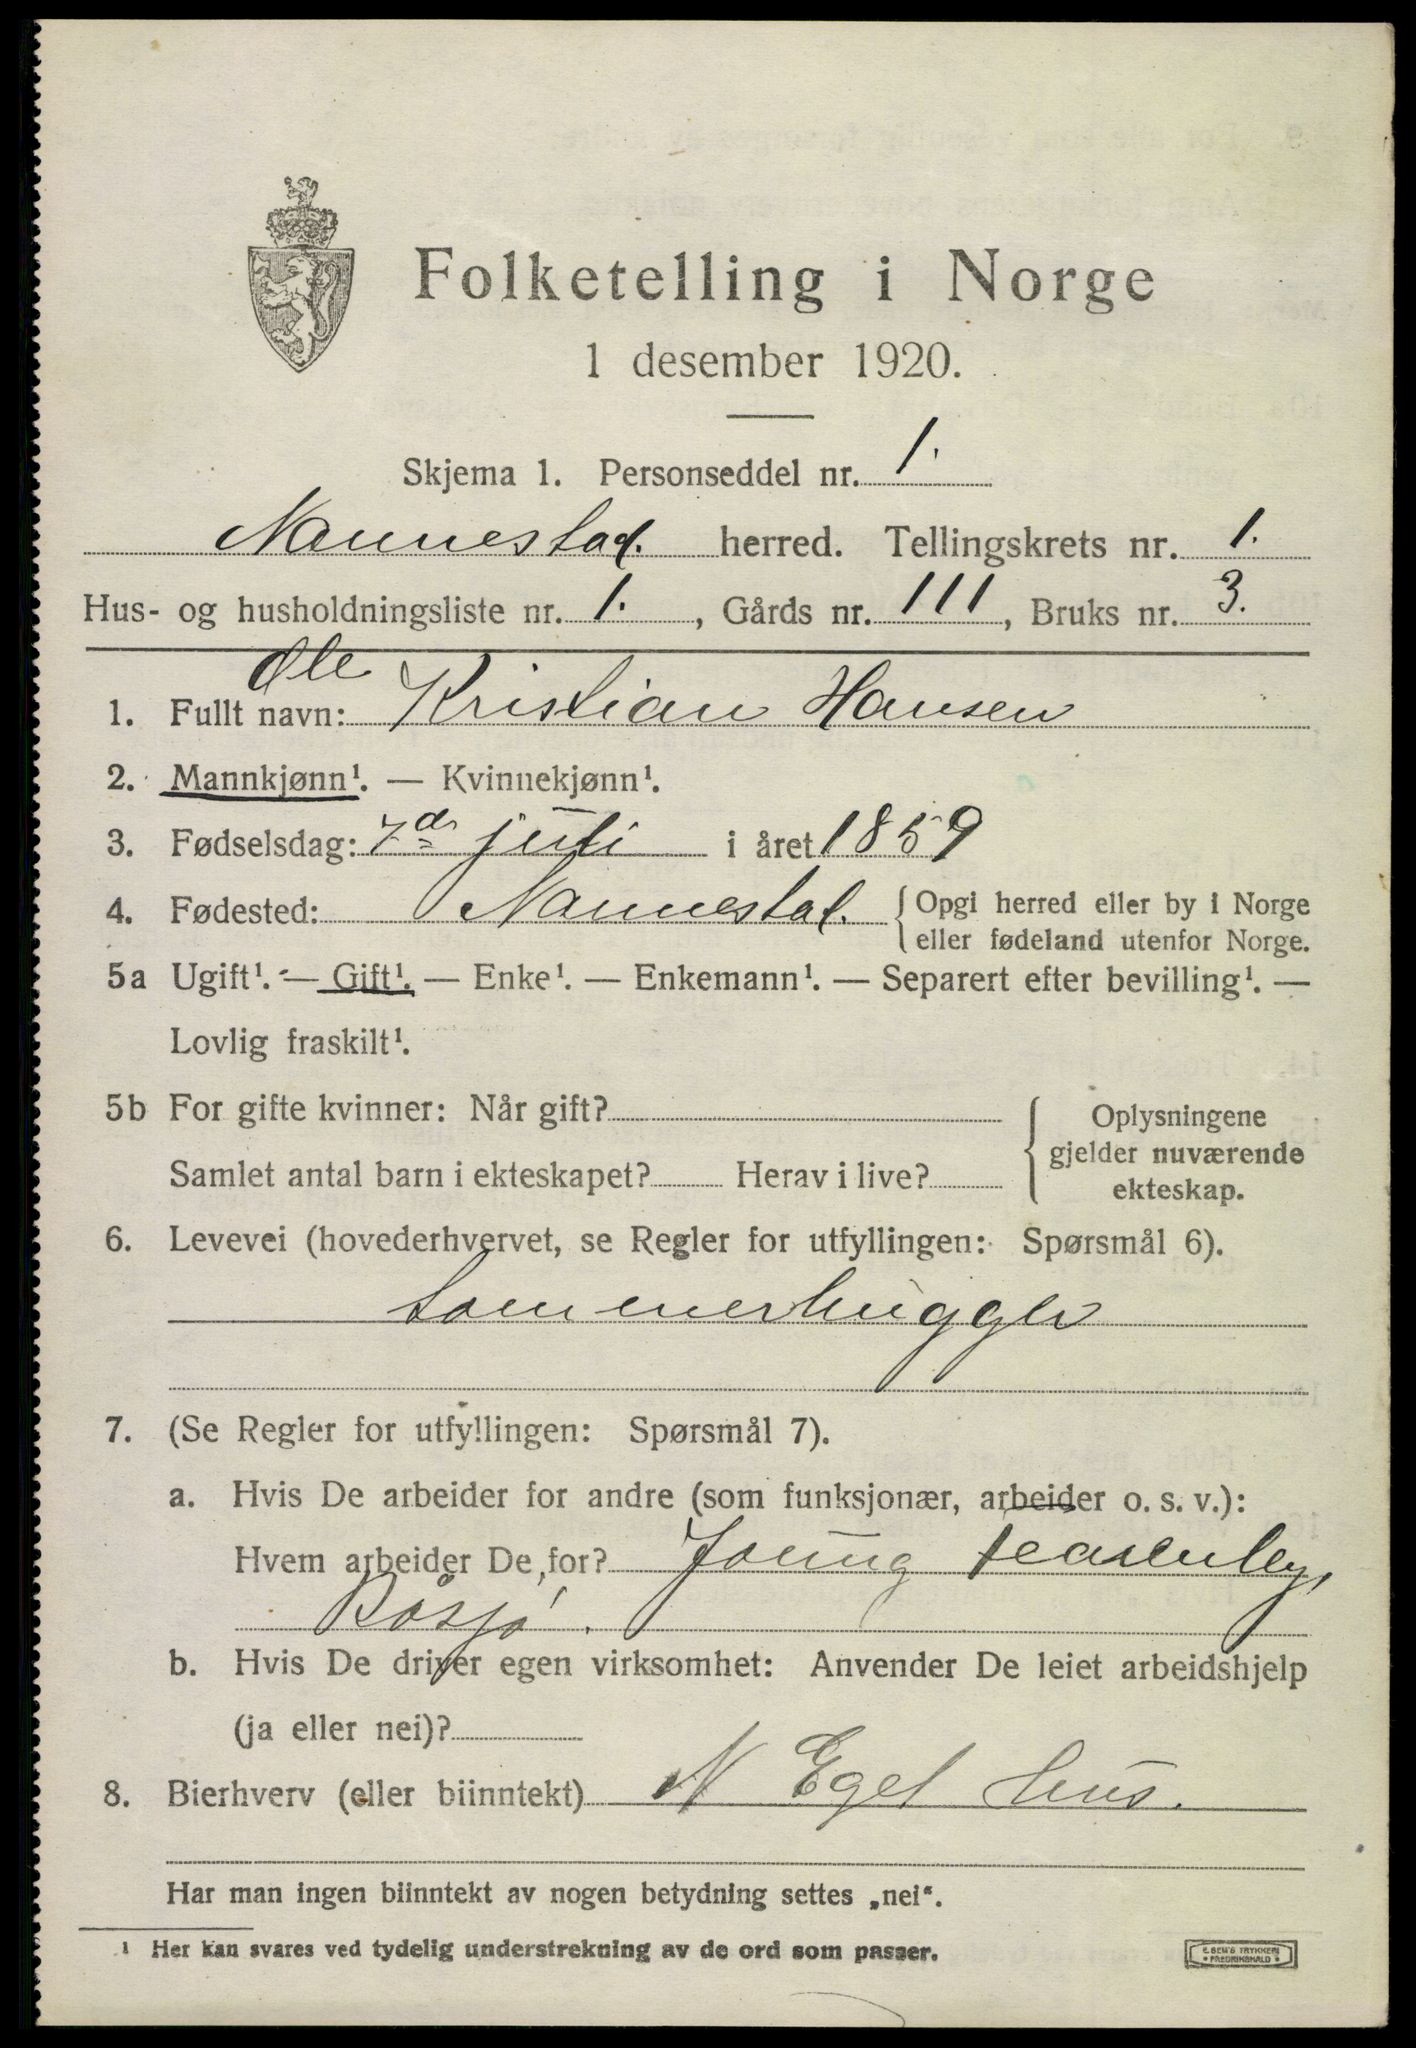 Folketelling i Norge
1 desember 1920.
Skjema 1. Personseddel nr. 1.
Nannestad. herred. Tellingskrets nr. 1.
Hus- og husholdningsliste nr. 1. , Gårds nr. 111, Bruks nr. 3.
Ole
1. Fullt navn: Kristian Hansen
2. Mannkjønn¹. — Kvinnekjønn¹.
3. Fødselsdag: 7de juli i året 1859
4. Fødested: Nannestad. { Opgi herred eller by i Norge
eller fødeland utenfor Norge.
5a Ugift¹. — Gift¹. — Enke¹. — Enkemann¹. — Separert efter bevilling¹. —
Lovlig fraskilt¹.
5b For gifte kvinner: Når gift?
Samlet antal barn i ekteskapet? Herav i live?
{ Oplysningene
gjelder nuværende
ekteskap.
6. Levevei (hovederhvervet, se Regler for utfyllingen: Spørsmål 6).
tømmerhugger
7. (Se Regler for utfyllingen: Spørsmål 7).
a. Hvis De arbeider for andre (som funksjonær, arbeider o. s. v.):
Hvem arbeider De for? Joung Fearnley,
b. Hvis De driver egen virksomhet: Anvender De leiet arbeidshjelp
(ja eller nei)?
8. Bierhverv (eller biinntekt) N Eget hus.
Har man ingen biinntekt av nogen betydning settes „nei“.
¹ Her kan svares ved tydelig understrekning av de ord som passer.
E. SEM'S TRYKKERI
• FREDRIKSHALD •